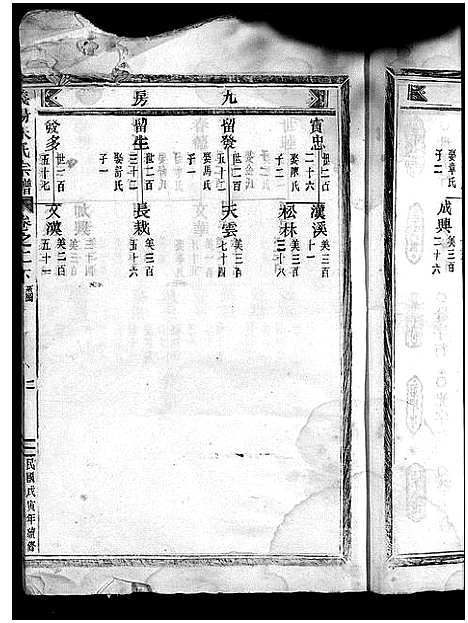 娶韋氏
子二
成興 美三百二十六
九房
寅忠 世二百二十六
娶陳氏
子二
漢溪 美三百十一
松林 美三百三十八
留發 世二百五十三
娶馬氏
子一
天雲 美三百七十四
留生 世二百三十二
娶俞氏
子一
長栽 美三百五十六
發多 世二百五十九
文漢 美二百五十一
朱氏宗譜
卷之二
民國戊寅年續修